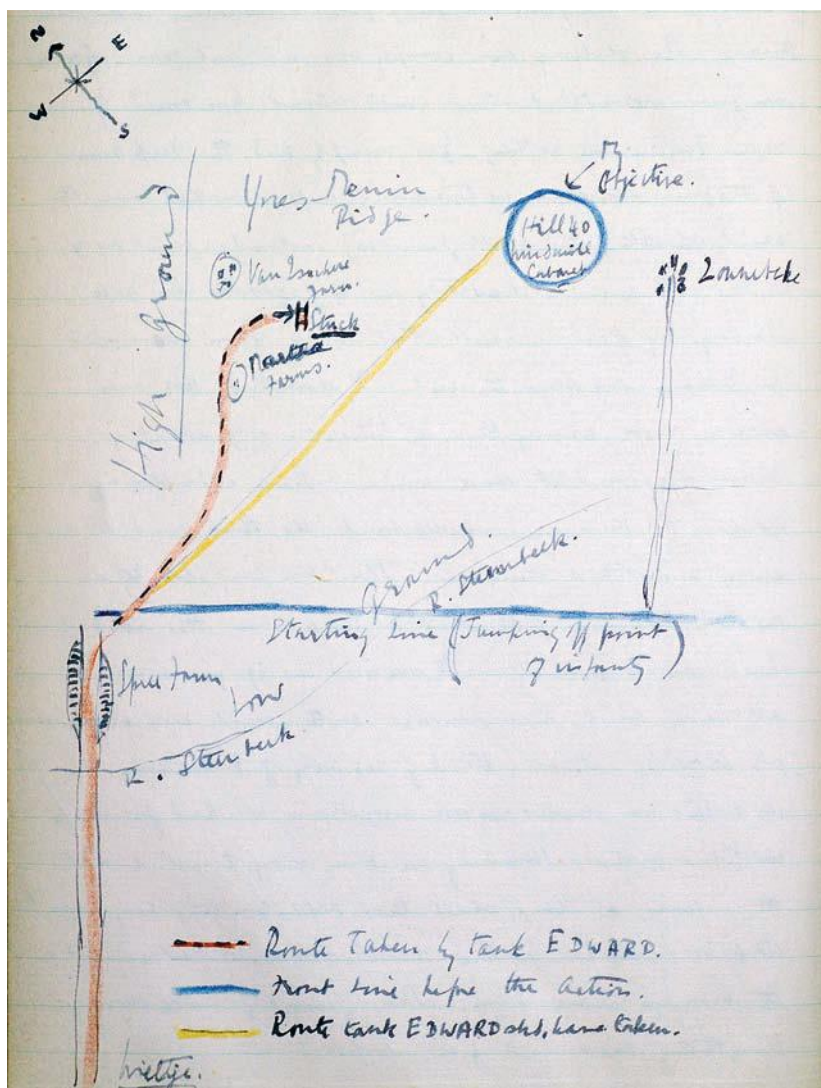 N
E
W
S
High ground
Ypres-Menin
Ridge.
My
Objective.
Hill 40
Windmill
Cabaret
Zonnebeke
Van Isackere
farm.
Stuck
Martha
Farms.
ground.
R. Steenbeck.
Starting Line (Jumping off point
of infantry)
Spree Farm
Low
R. Steenbeck
Route Taken by tank EDWARD.
Front Line before the Action.
Route tank EDWARD shd. have taken.
Wieltje.